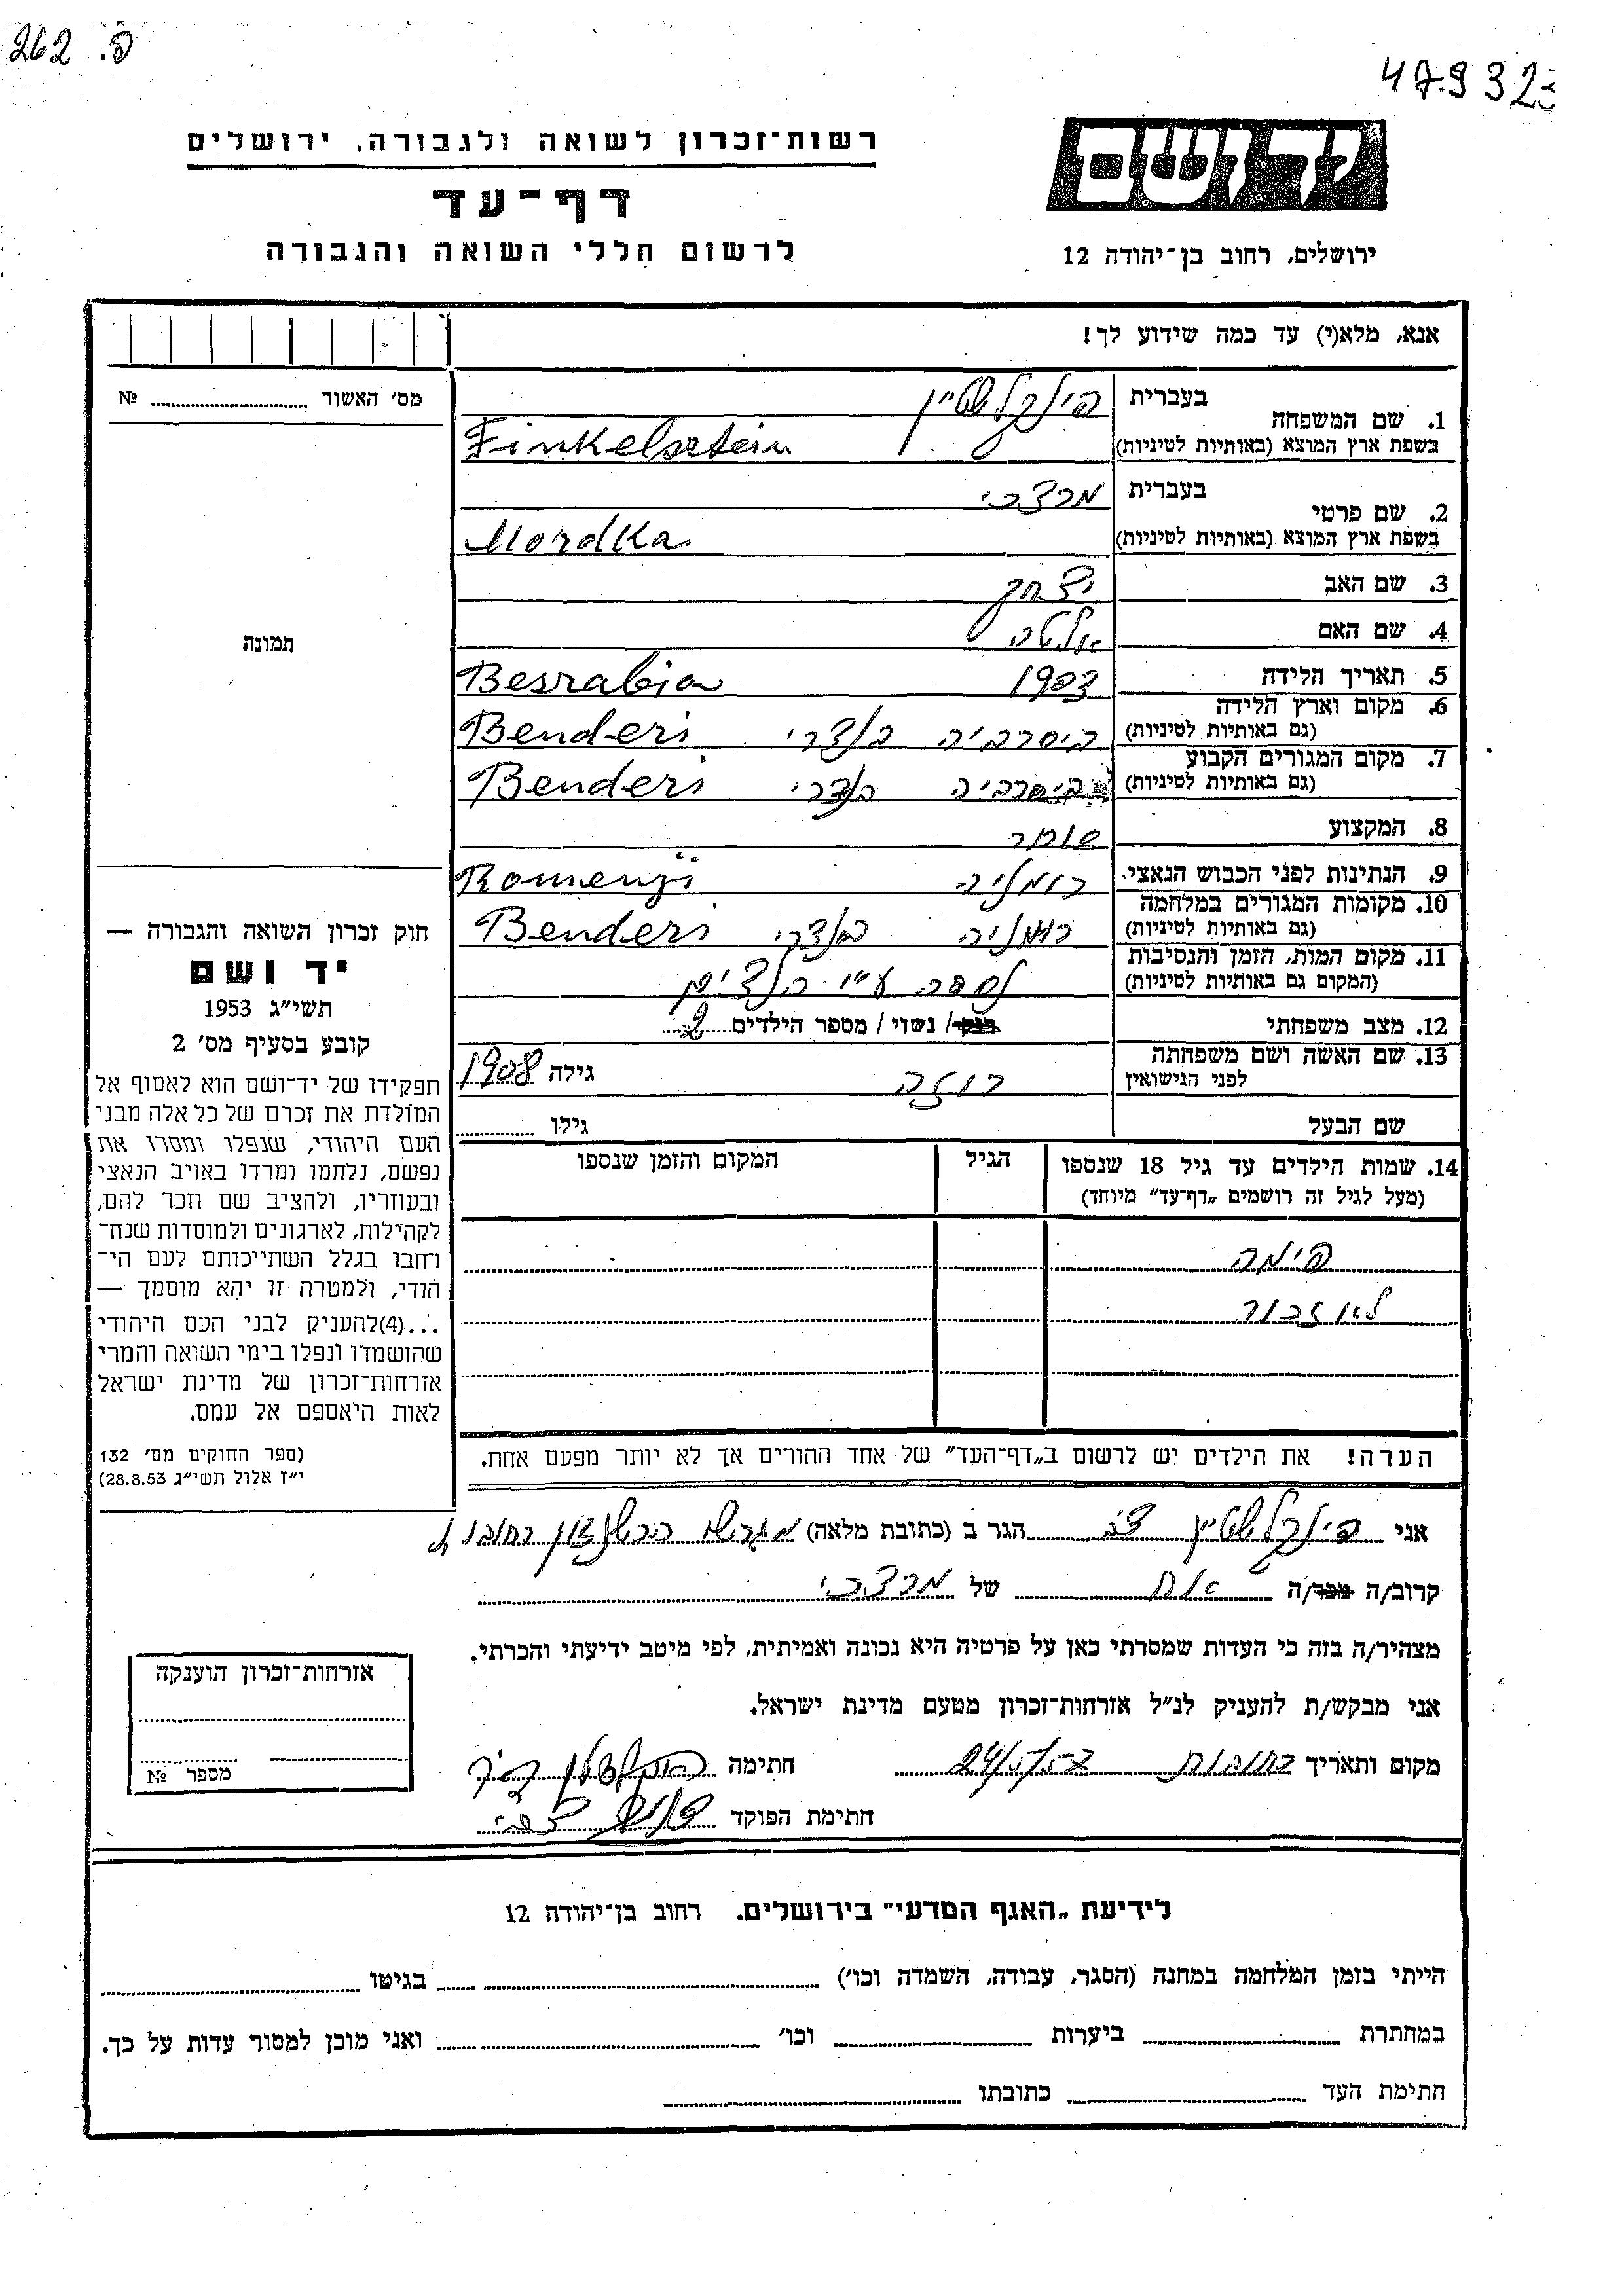 262 .פ
47932
רשות־זכרון לשואה ולגבורה, ירושלים
יד ושם
דף־עד
לרשום חללי השואה והגבורה
ירושלים, רחוב בן־יהודה 12
אנא, מלא(י) עד כמה שידוע לך!
מס׳ האשור № 
1. שם המשפחה בעברית פינקלשטיין
בשפת ארץ המוצא (באותיות לטיניות) Finkelsztein
2. שם פרטי בעברית מרדכי
בשפת ארץ המוצא (באותיות לטיניות) Mordka
3. שם האב יצחק
4. שם האם אלטה
תמונה
5. תאריך הלידה 1903 Besrabia
6. מקום וארץ הלידה (גם באותיות לטיניות) ביסרביה בנדרי Benderi
7. מקום המגורים הקבוע (גם באותיות לטיניות) ביסרביה בנדרי Benderi
8. המקצוע סוחר
9. הנתינות לפני הכבוש הנאצי רומניה Romenji
10. מקומות המגורים במלחמה (גם באותיות לטיניות) רומניה בנדרי Benderi
11. מקום המות, הזמן והנסיבות (המקום גם באותיות לטיניות) נספה ע״י הנאצים
12. מצב משפחתי רווק / נשוי / מספר הילדים 2
13. שם האשה ושם משפחתה לפני הנישואין רוזה גילה 1908
שם הבעל גילו
14. שמות הילדים עד גיל 18 שנספו הגיל המקום והזמן שנספו
(מעל לגיל זה רושמים „דף־עד״ מיוחד)
פימה
לא זכור
חוק זכרון השואה והגבורה —
יד ושם
תשי״ג 1953
קובע בסעיף מס׳ 2
תפקידו של יד־ושם הוא לאסוף אל
המולדת את זכרם של כל אלה מבני
העם היהודי, שנפלו ומסרו את
נפשם, נלחמו ומרדו באויב הנאצי
ובעוזריו, ולהציב שם וזכר להם,
לקהילות, לארגונים ולמוסדות שנח־
רחבו בגלל השתייכותם לעם הי־
הודי, ולמטרה זו יהא מוסמך —
...(4)להעניק לבני העם היהודי
שהושמדו ונפלו בימי השואה והמרי
אזרחות־זכרון של מדינת ישראל
לאות היאספם אל עמם.
(ספר החוקים מס׳ 132
י״ז אלול תשי״ג 28.8.53)
הערה! את הילדים יש לרשום ב„דף־העד״ של אחד ההורים אך לא יותר מפעם אחת.
אני פינקלשטיין הגר ב (כתובת מלאה) רחובות
קרוב/ה מכר/ה אח של מרדכי
מצהיר/ה בזה כי העדות שמסרתי כאן על פרטיה היא נכונה ואמיתית, לפי מיטב ידיעתי והכרתי.
אני מבקש/ת להעניק לנ״ל אזרחות־זכרון מטעם מדינת ישראל.
מקום ותאריך רחובות חתימה
חתימת הפוקד
אזרחות־זכרון הוענקה
מספר №
לידיעת „האגף המדעי״ בירושלים, רחוב בן־יהודה 12
הייתי בזמן המלחמה במחנה (הסגר, עבודה, השמדה וכו׳) בגיטו
במחתרת ביערות וכו׳ ואני מוכן למסור עדות על כך.
חתימת העד כתובתו